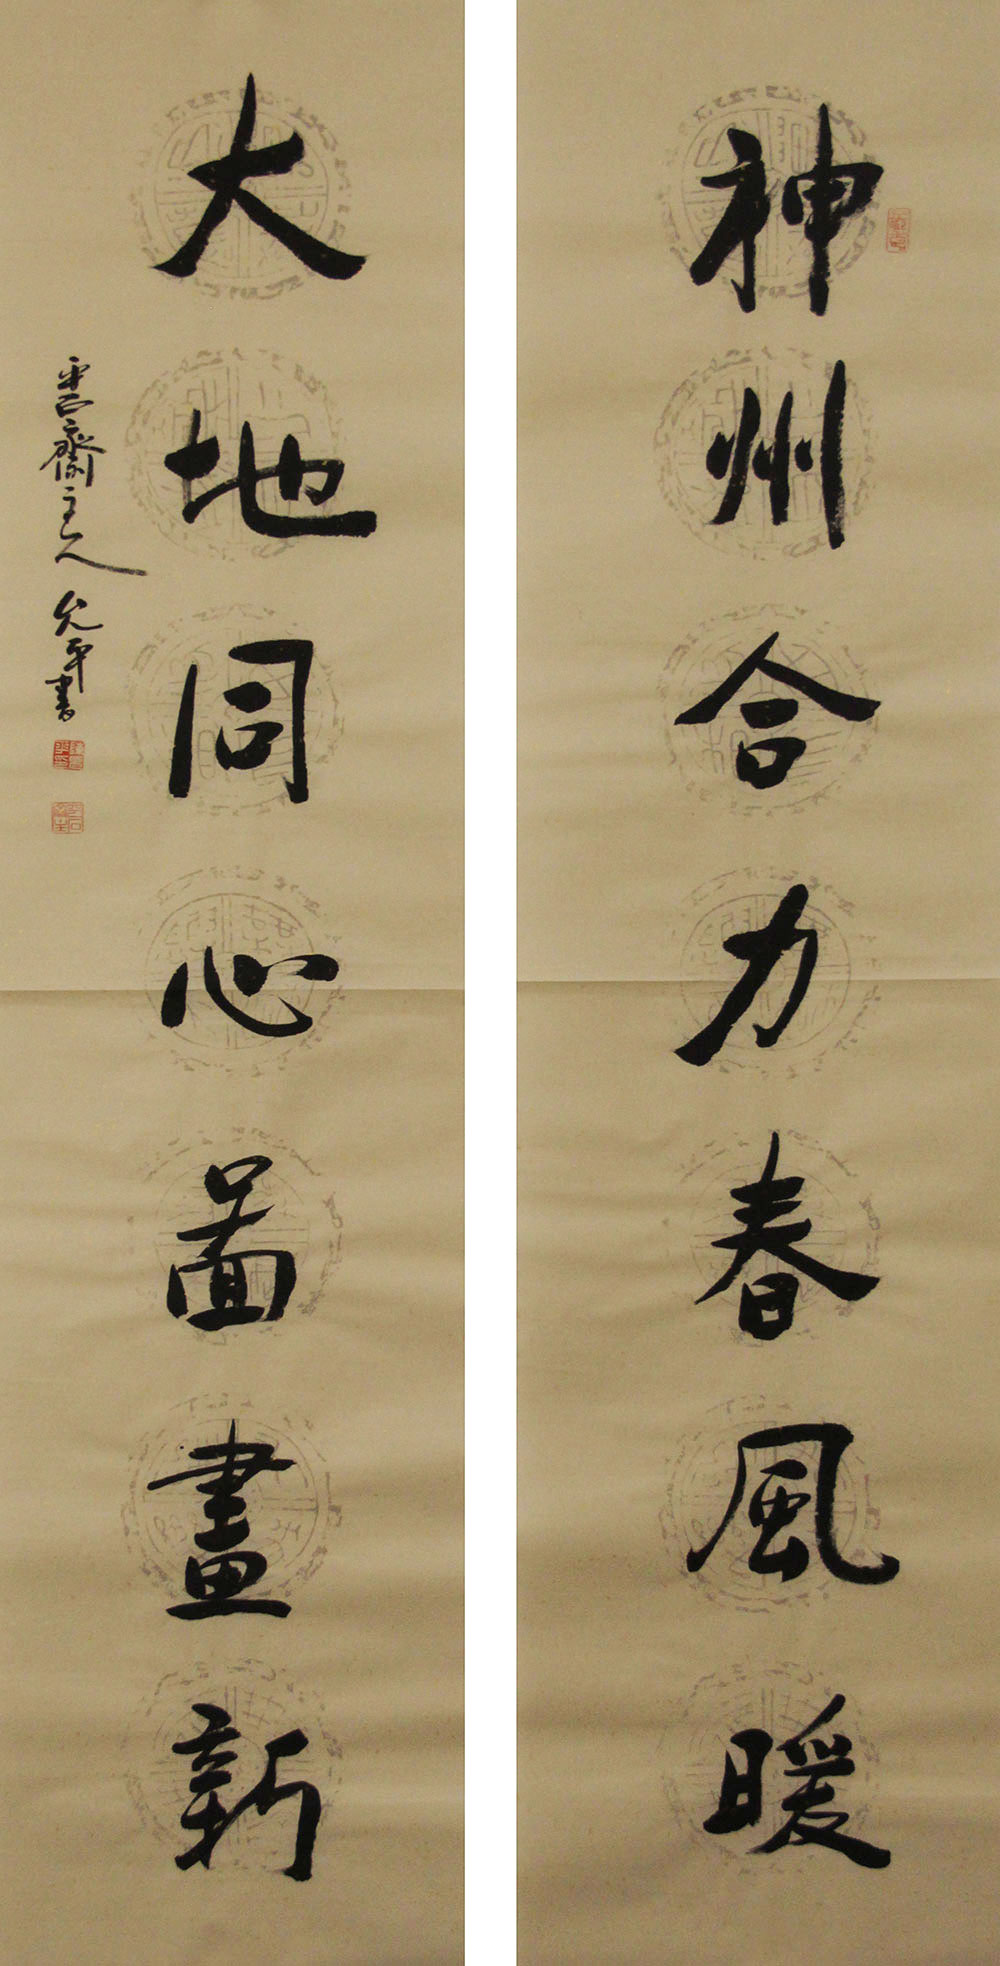 神州合力春風暖
大地同心圖畫新
齋主人 允平書